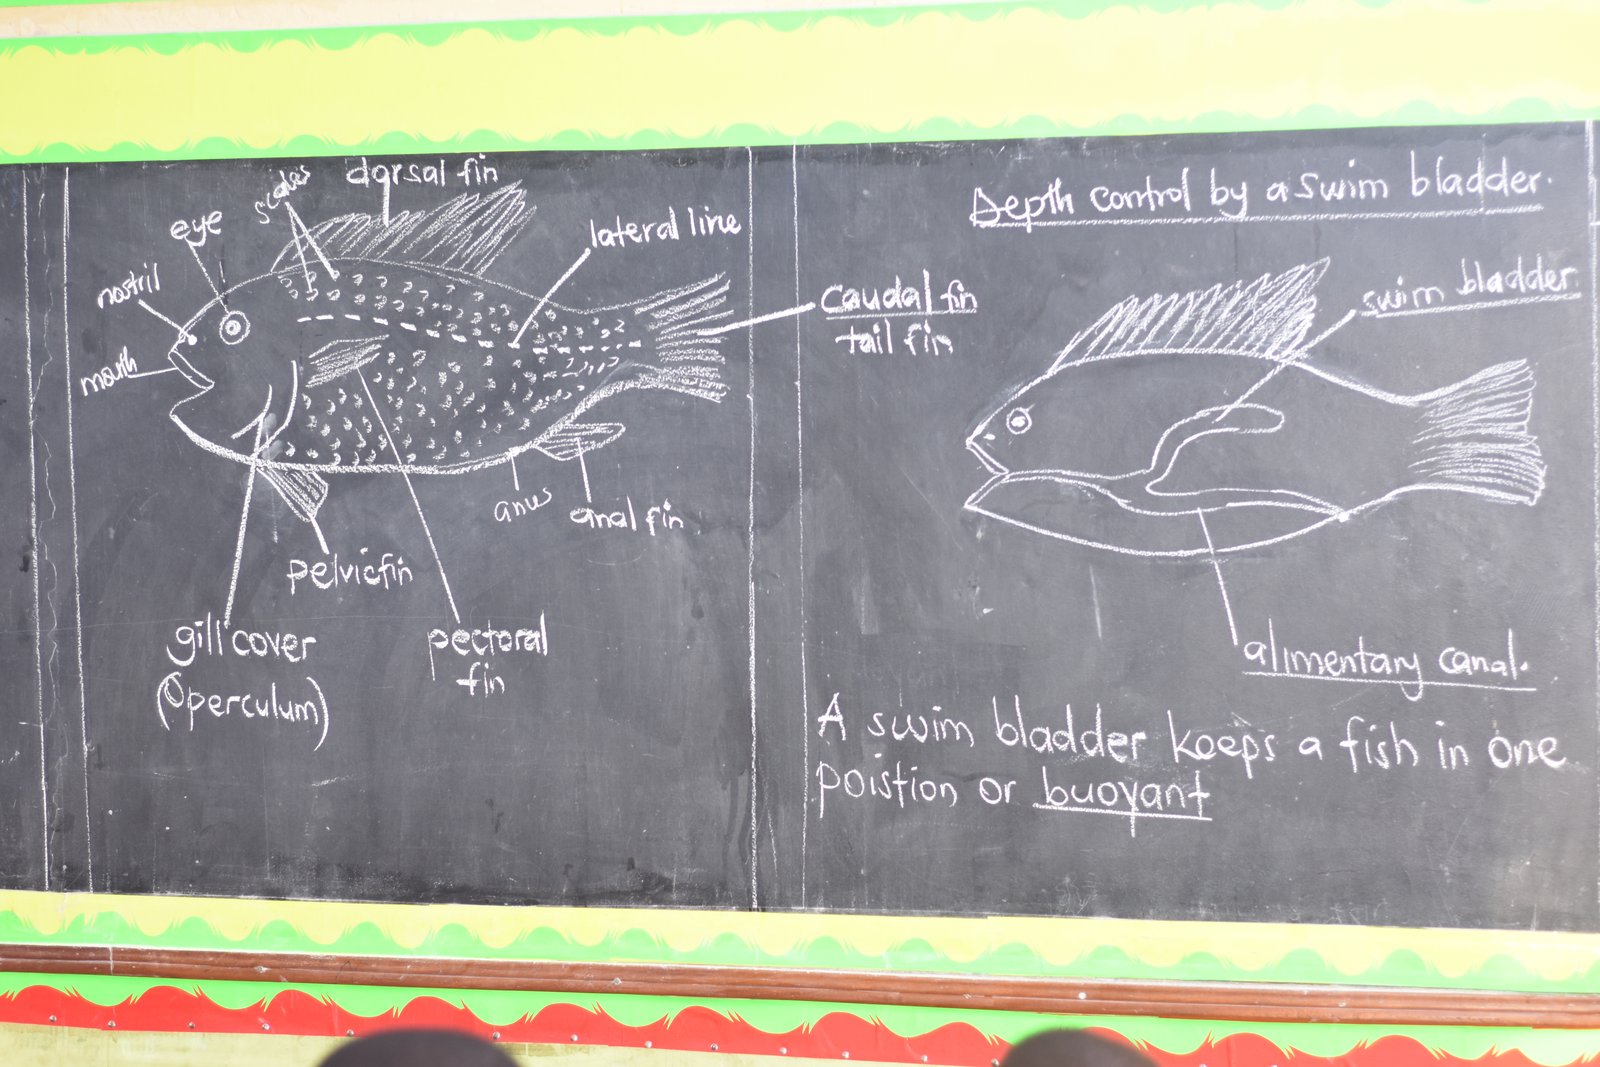 scales
dorsal fin
eye
lateral line
nostril
mouth
caudal fin
tail fin
anus
anal fin
pelvicfin
gill cover
(Operculum)
pectoral
fin
Depth control by a swim bladder.
swim bladder.
alimentary canal.
A swim bladder keeps a fish in one
poistion or buoyant